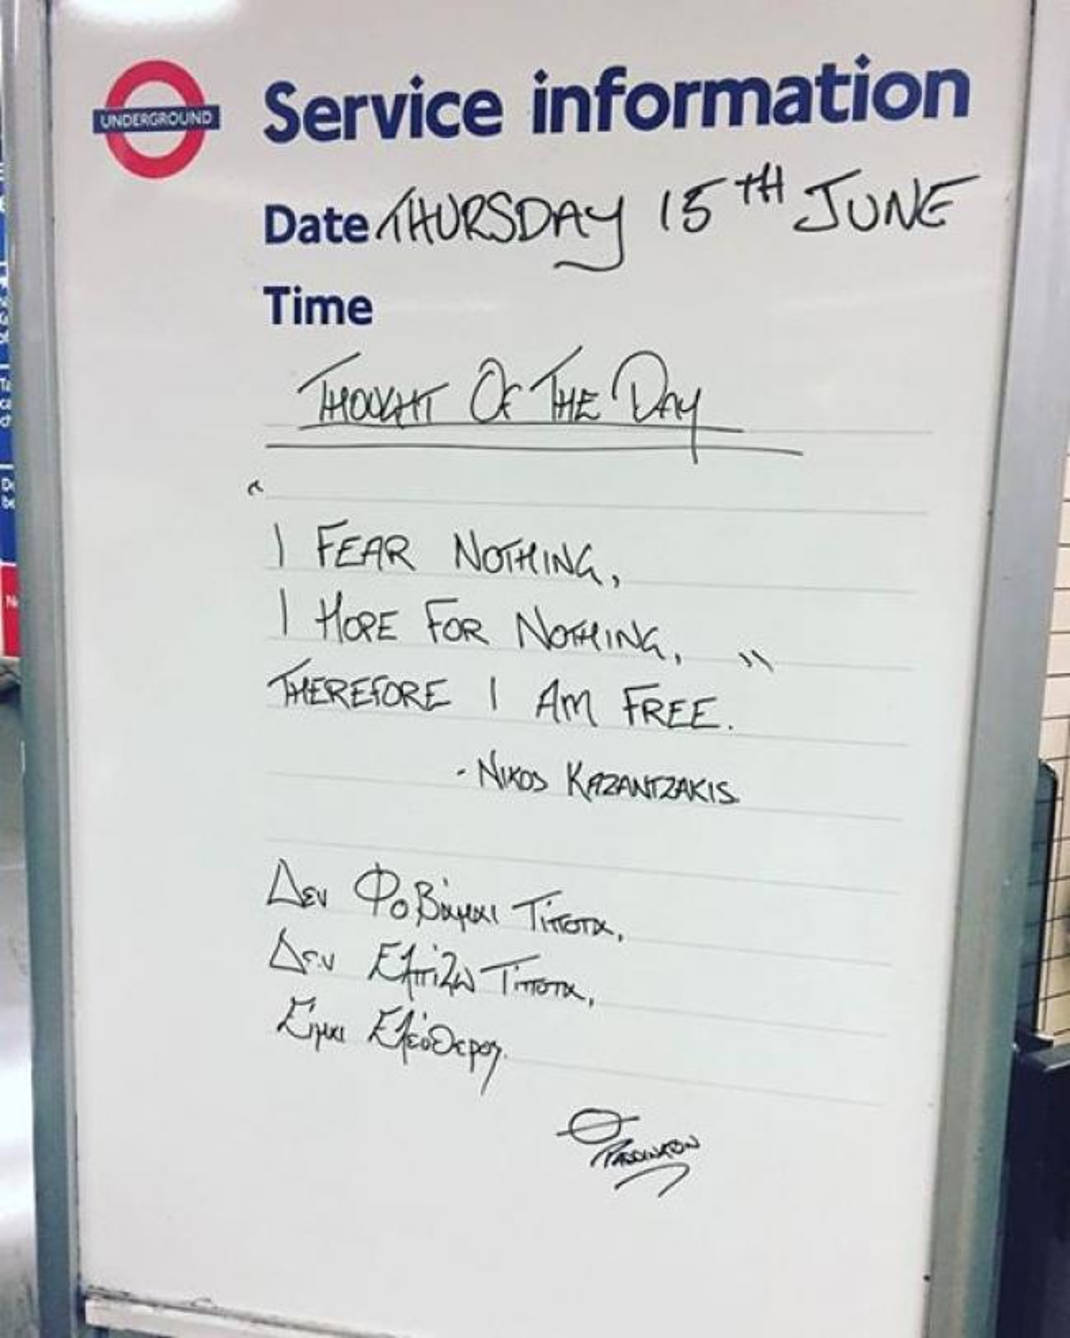 UNDERGROUND
Service information
Date THURSDAY 15TH JUNE
Time
THOUGHT OF THE DAY
"
I FEAR NOTHING,
I HOPE FOR NOTHING, "
THEREFORE I AM FREE.
- NIKOS KAZANTZAKIS
Δεν Φοβάμαι Τίποτα,
Δεν Ελπίζω Τίποτα,
Είμαι Ελεύθερος.
PADDINGTON